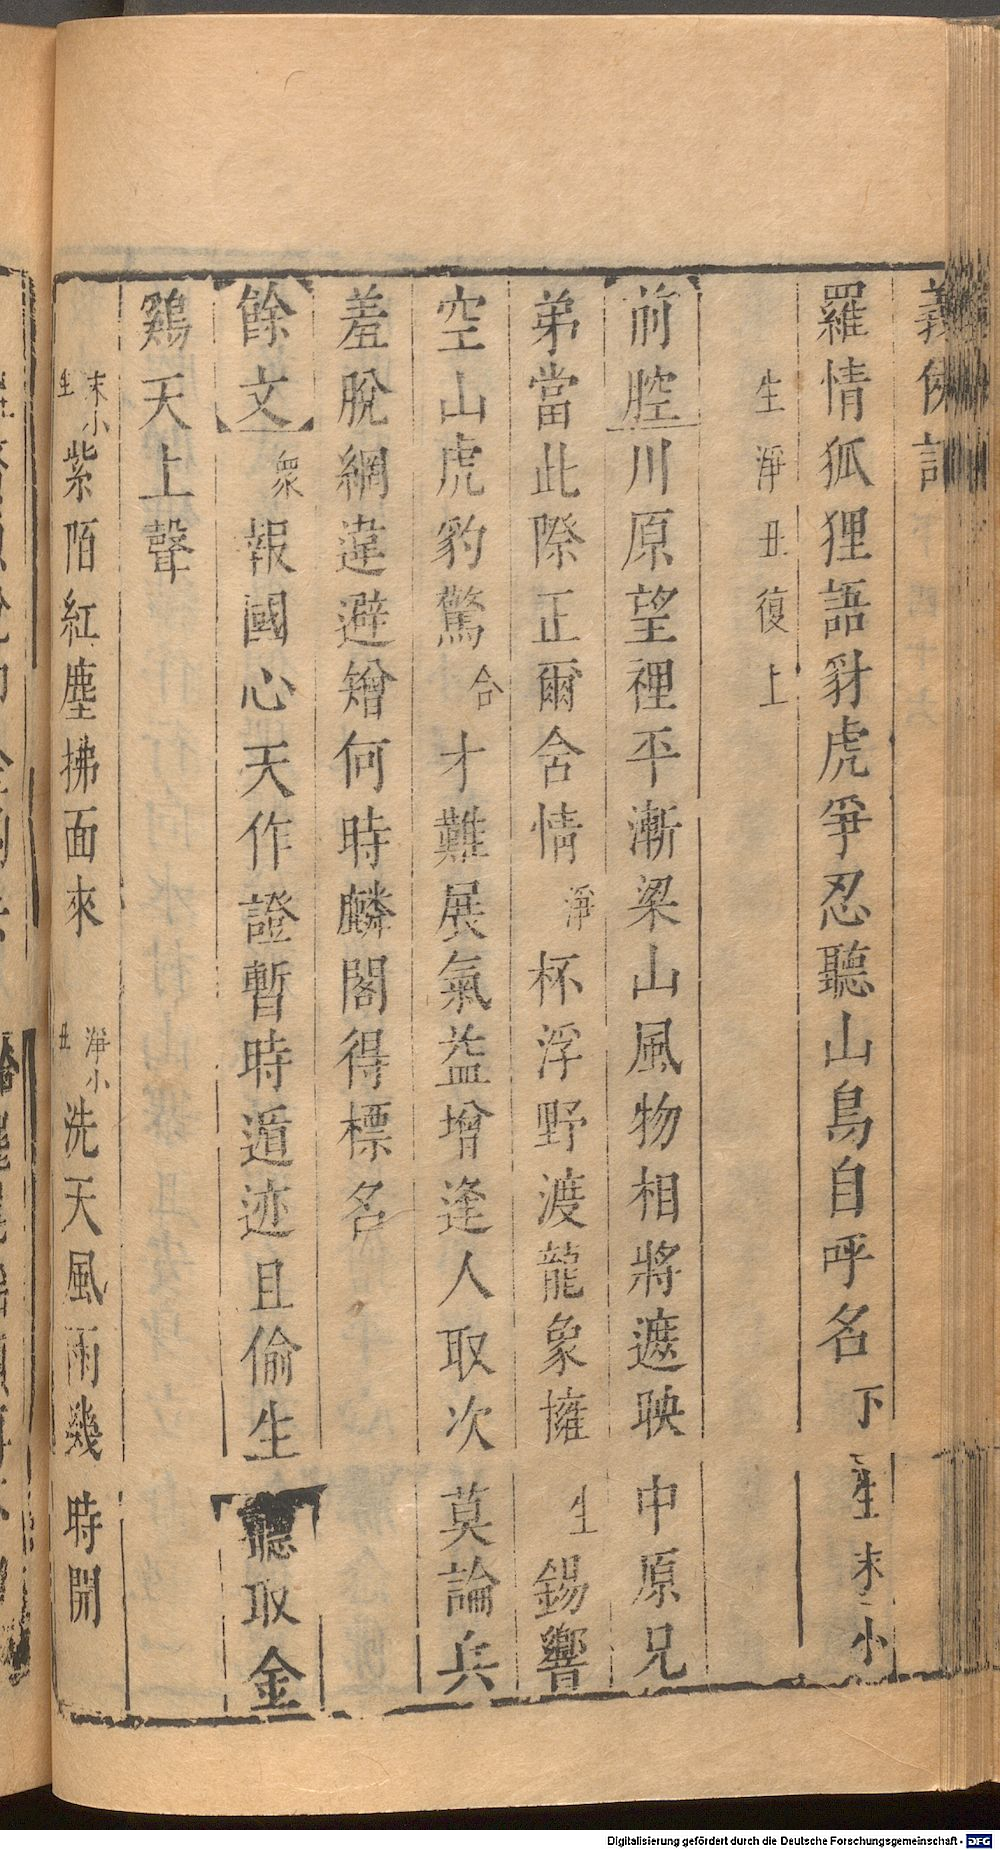 義俠記
羅情狐狸語豺虎爭忍聽山鳥自呼名 下 生末小
生淨丑復上
前腔 川原望裡平漸梁山風物相將遮映中原兄
弟當此際正爾舍情 淨 杯浮野渡龍象擁 生 錫響
空山虎豹驚 合 才難展氣益增逢人取次莫論兵
羞脫網違避矰何時麟閣得標名
餘文 衆 報國心天作證暫時遁迹且偷生聽取金
鷄天上聲
末小生 紫陌紅塵拂面來 淨小丑 洗天風雨幾時開
Digitalisierung gefördert durch die Deutsche Forschungsgemeinschaft - DFG